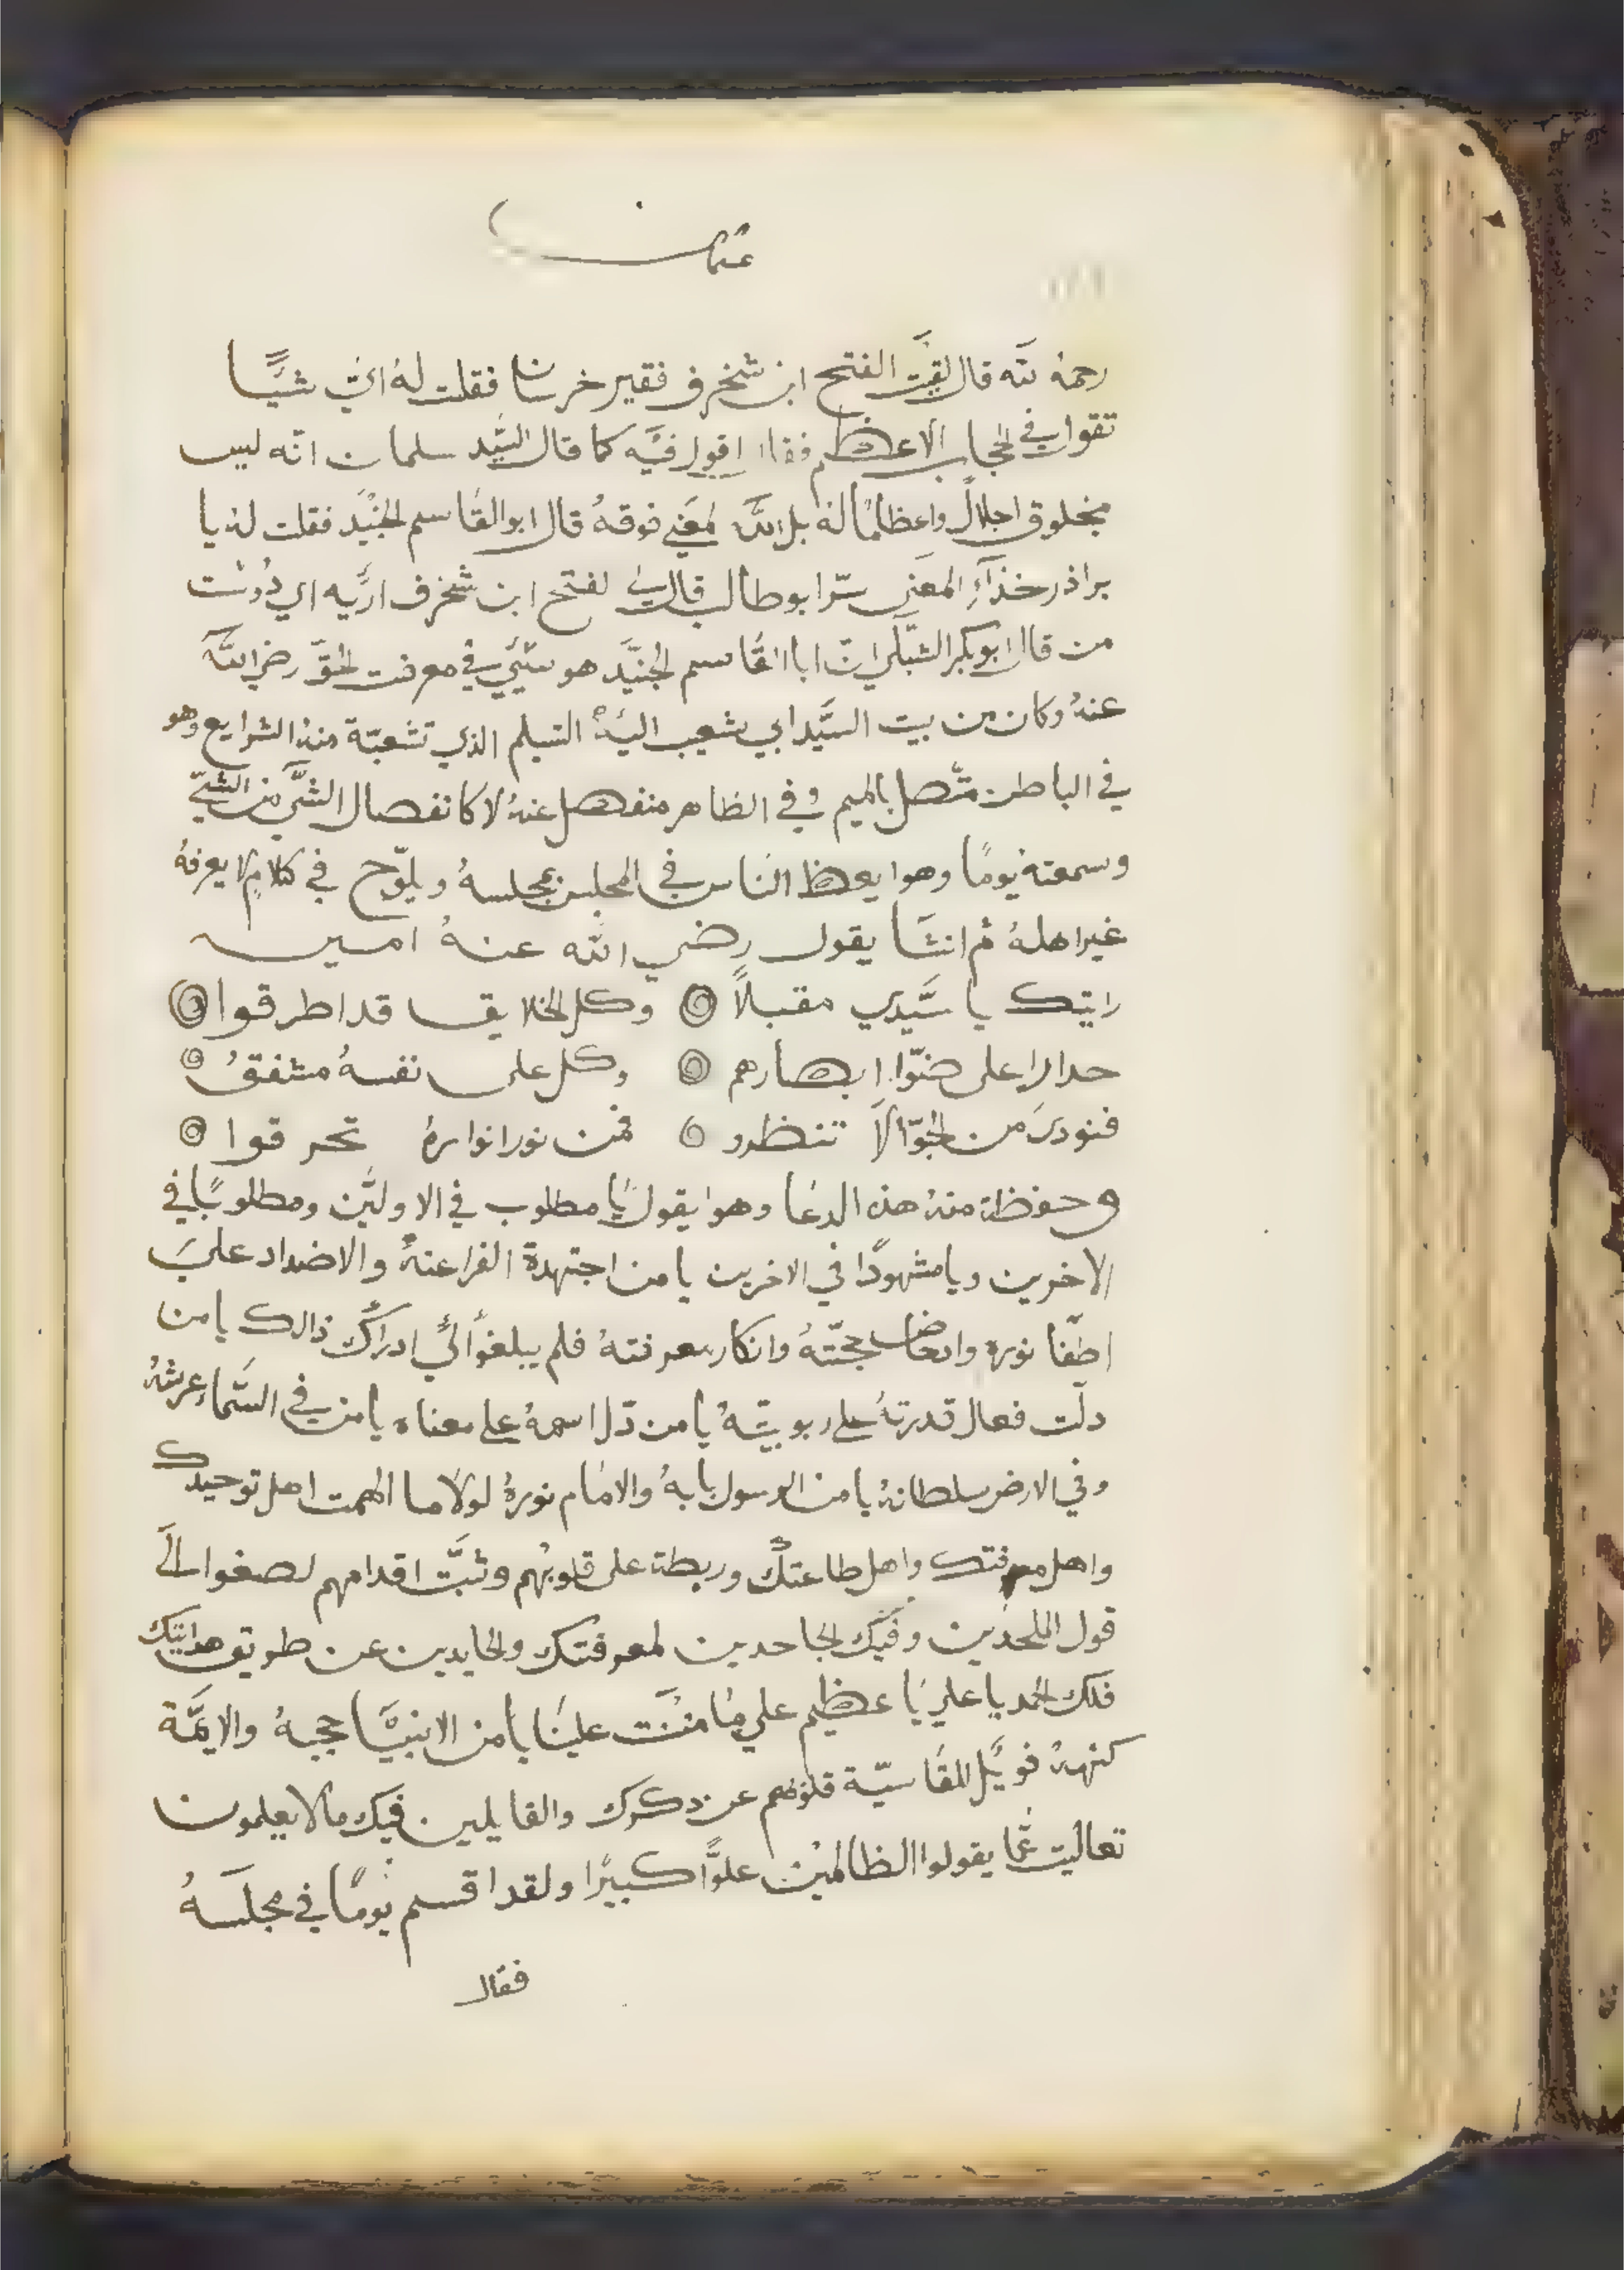 رحمهُ لله قال لقيَت الفتح ابن شخرف فقير خرسان فقلت لهُ ايّ شيًّا
تقول في الحجاب الاعظم فقال اقول فيَّه كما قال السَّيد سلمان انّه ليس
بمخلوق اجلالً واعظامًا له بل اللَّه لمعَني فوقهُ قال ابو القاسم الجنَيْد فقلت له يا
براذر خذآءِ المعَنى سّرا ابو طالب قال لفتح ابن شخرف اريَّه اي دُوسْت
من قال ابو بكر الشبَّلي انّ ابا القاسم الجنيَّد هو ستيّي في معرفت الحقّ رضي اللَّه
عنهُ وكان من بيت السيَّد ابي شعيب اليهْ التسلم الذي تشعبّة منهُ الشرايع وهو
في الباطن متّصل بالميم وفي الظاهر منفصل عنهُ لا كانفصال الشَّي من الشَّيّ
وسمعته يومًا وهوا يعظ الناس في المجلس بمجلسهُ ويلوّح في كلامٍ لا يعرفهُ
غير اهلهُ ثم انشَا يقول رضي اللّه عنهُ امين
رايتك يا سَّيدي مقبلاً ۞ وكل الخلايق قد اطرقوا ۞
حدارا على ضوّا ابصارهم ۞ وكل على نفسهُ مشفقُ ۞
فنوديَ من الجوّ الاَ تنظرو ۞ فمن نور انوارهُ تحرقوا ۞
وحفظة منهُ هذه الدعَا وهوا يقول يَا مطلوب في الاوليَّن ومطلوبًا في
الاخرين ويا مشهودًا في الاخرين يا من اجتهدة الفراعنهُ والاضداد علىَ
اطّفا نورهِ وادحاض حجّتهُ وانكار معرفتهُ فلم يبلغواُ اليَّ ادراكَ ذالك يا من
دلّت فعال قدرتهُ على ربوبيّتهُ يا من دّل اسمهُ على معناه يا من في السَّماء عرشهُ
وفي الارض سلطانهُ يا من الرسول بابهُ والامَام نورهُ لولا ما الهمت اهل توحيدك
واهل معرفتك واهل طاعتكَ وربطة على قلوبُهم وثبَّت اقدامهم لصغوا الَي
قول الملحدَين وفيَّك الجاحدين لمعرفتك والحايدين عن طريق هدايتك
فلك الحمد يا علي يَا عظيم علي مَا مننَت علينَا يا من الانبيَّا حجبهُ والايمَّة
كنههُ فويَّل للقاسيّة قلوبَهم عن دكرك والقايلين فيك ما لا يعلمون
تعاليت عمَّا يقولوا الظالميَن علوًّا كبيًرا ولقد اقسم يومًا في مجلسَهُ
فقال